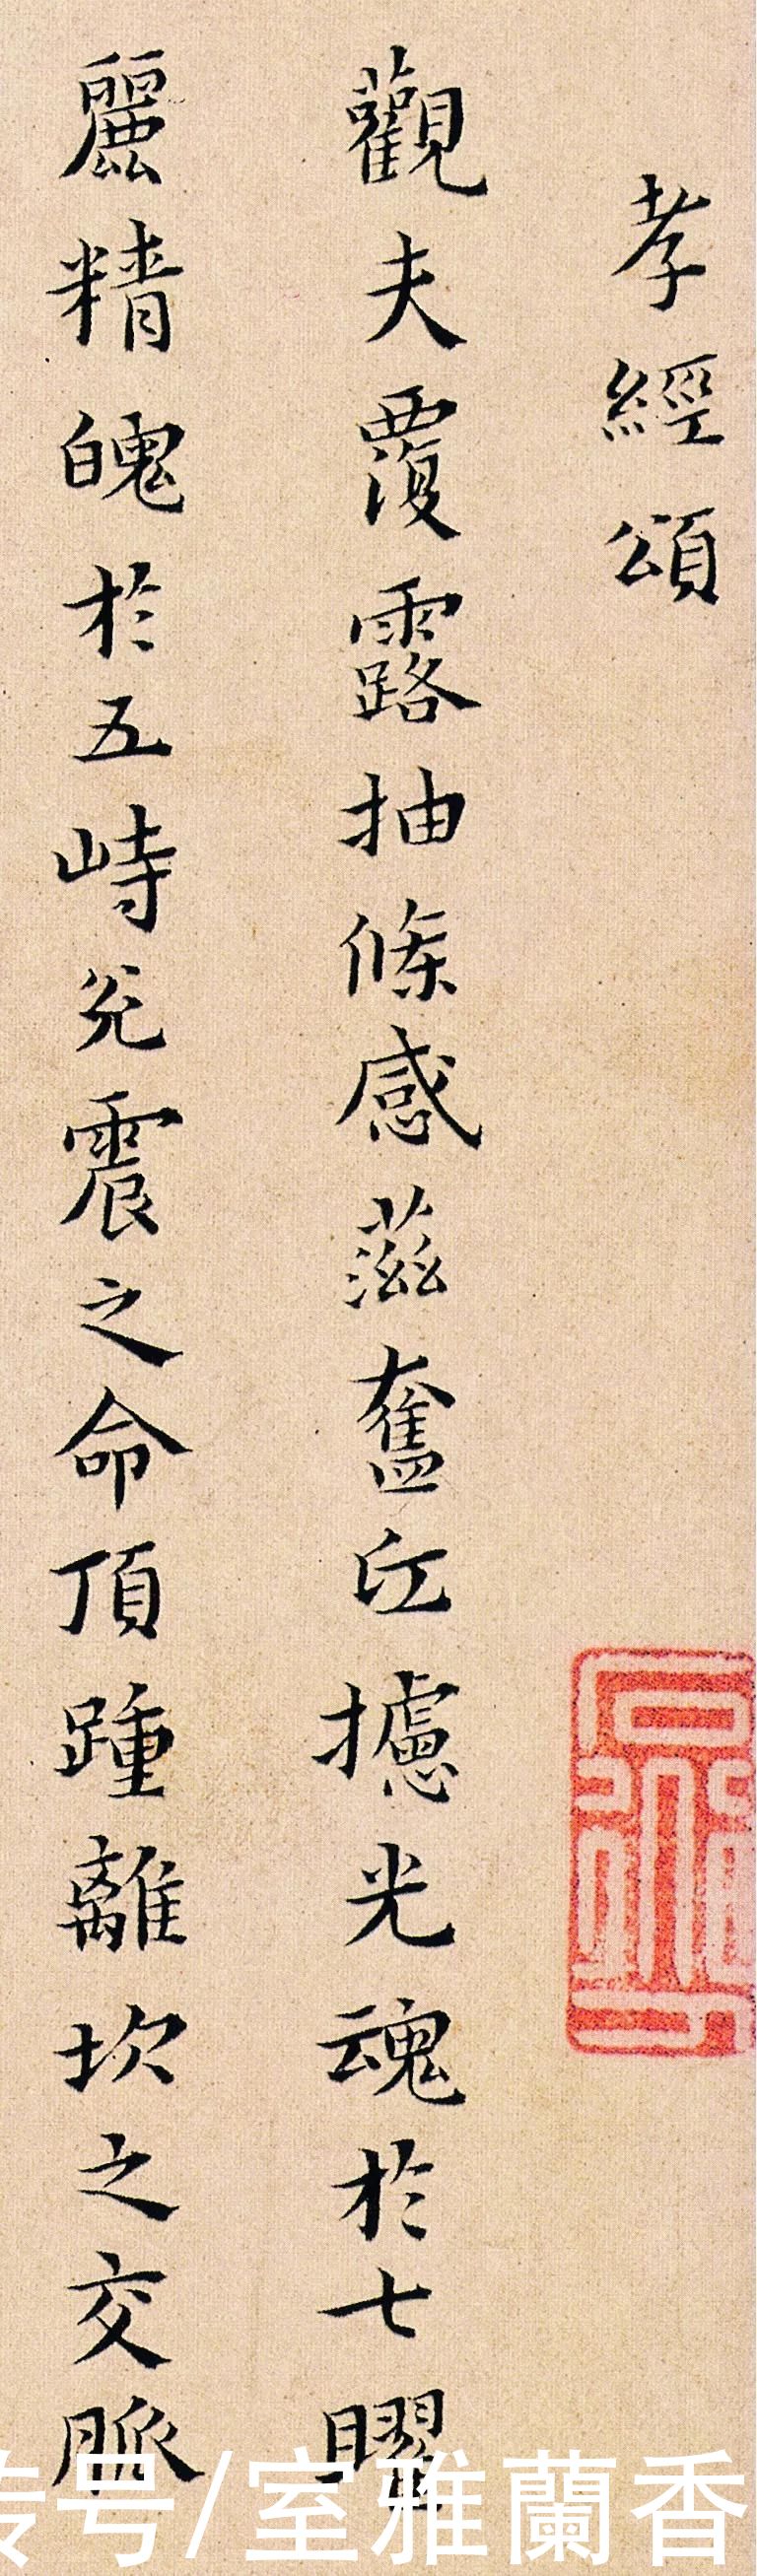 孝經頌
觀夫覆露抽條感蕬奮丘攄光魂於七曜
麗精魄於五峙兊震之命頂踵離坎之交脈
号/室雅蘭香